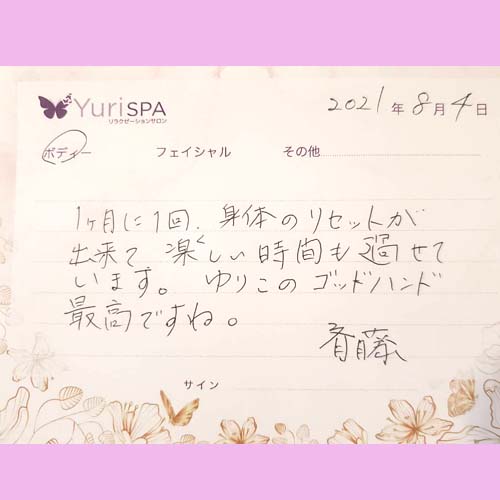 YuriSPA
リラクゼーションサロン
2021年8月4日
ボディー フェイシャル その他
1ヶ月に1回、身体のリセットが
出来て楽しい時間も過せて
います。 ゆりこのゴッドハンド
最高ですね。
斉藤
サイン